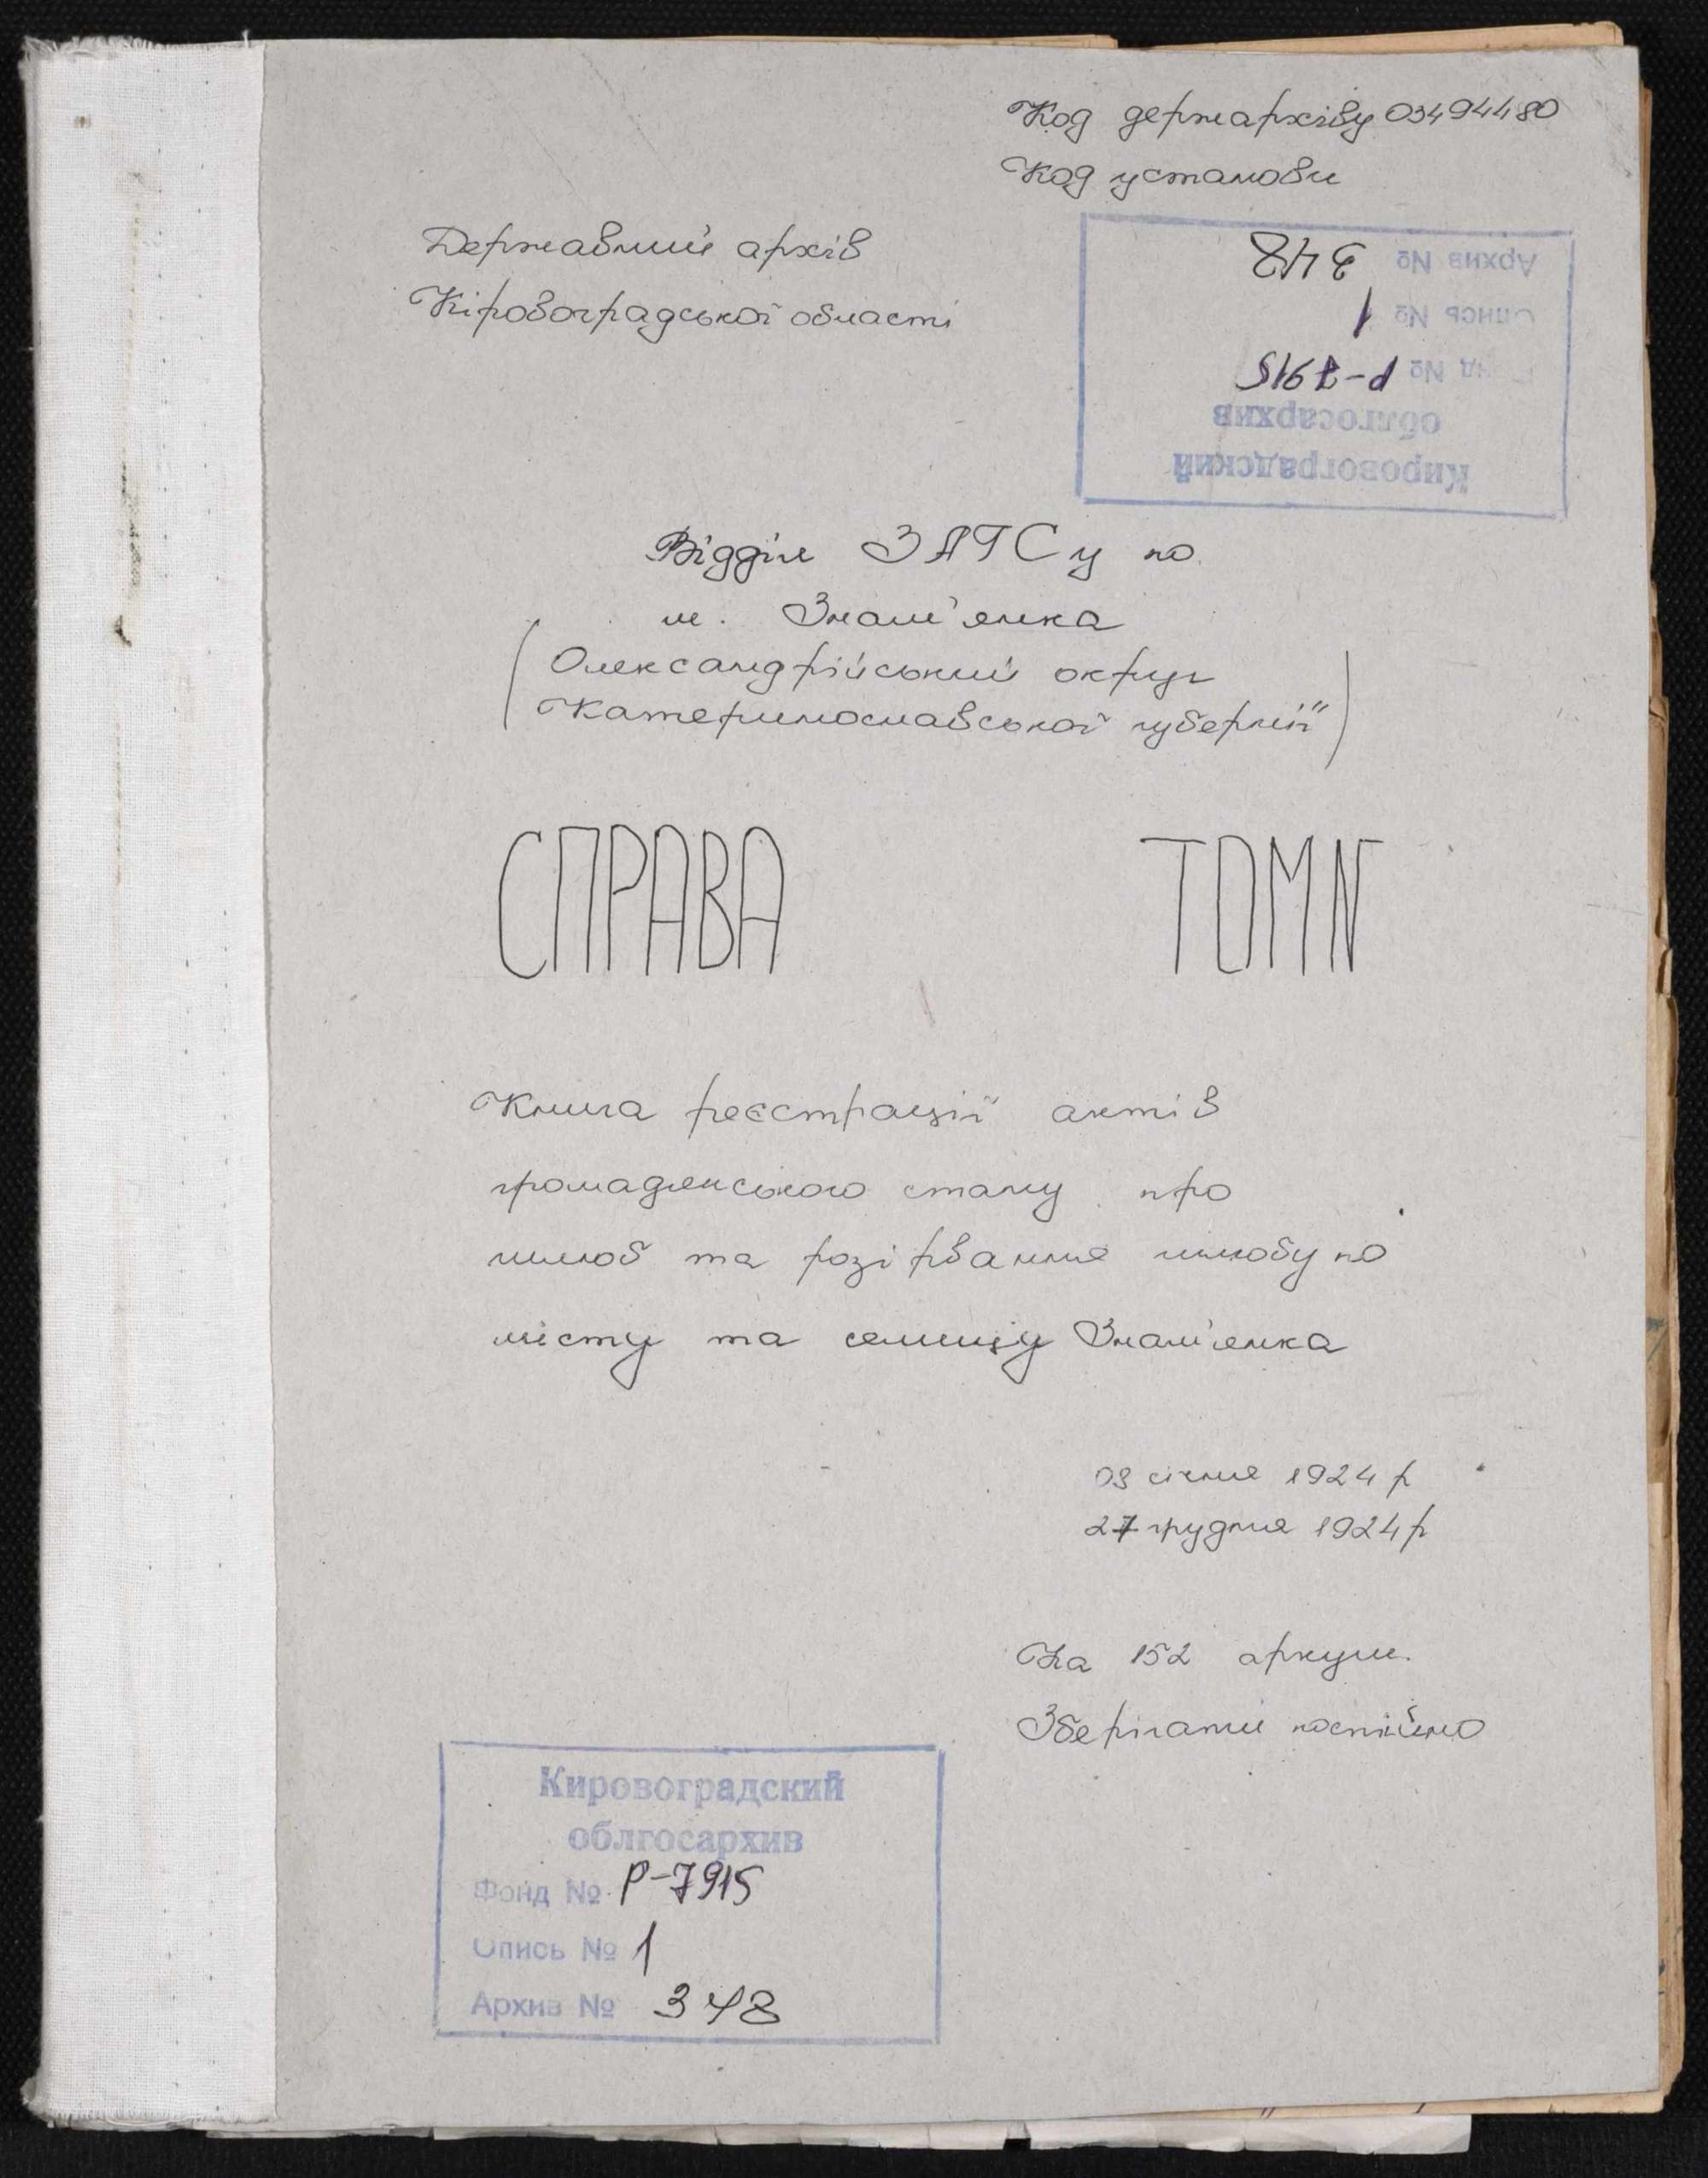 Код держархіву 03494480
Код установи
Державний архів
Кіровоградської області
Кировоградский
облгосархив
Фонд № Р-7915
Опись № 1
Архив № 348
Відділ ЗАГСу по
м. Знам'янка
(Олександрійський округ
Катеринославської губернії)
СПРАВА ТОМ №
Книга реєстрації актів
громадянського стану про
шлюб та розірвання шлюбу по
місту та селищу Знам'янка
03 січня 1924 р
27 грудня 1924 р
На 152 аркуш.
Зберігати постійно
Кировоградский
облгосархив
Фонд № Р-7915
Опись № 1
Архив № 348